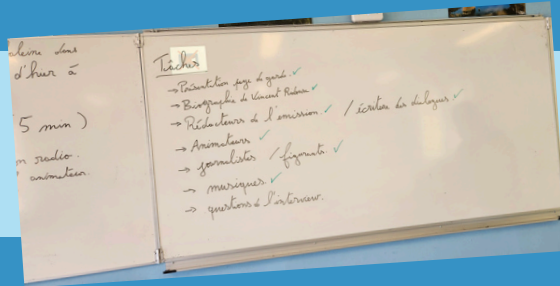 dans
d'hier à
5 min)
radio.
Tâches
→ Présentation page de garde. ✓
→ Biographie de Vincent ✓
→ Rédacteurs de l'émission. ✓ / écriture des dialogues ✓
→ Animateurs ✓
→ journalistes / figurants. ✓
→ musiques. ✓
→ questions de l'interview.